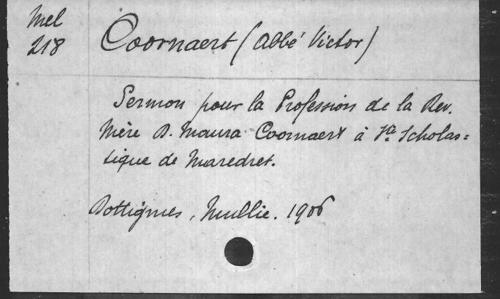 Mel
218
Coornaert (Abbé Victor)
Sermon pour la Profession de la Rev.
Mère D. Maura Coornaert à Ste Scholas=
tique de Maredret.
Dottignies, Mullie. 1906